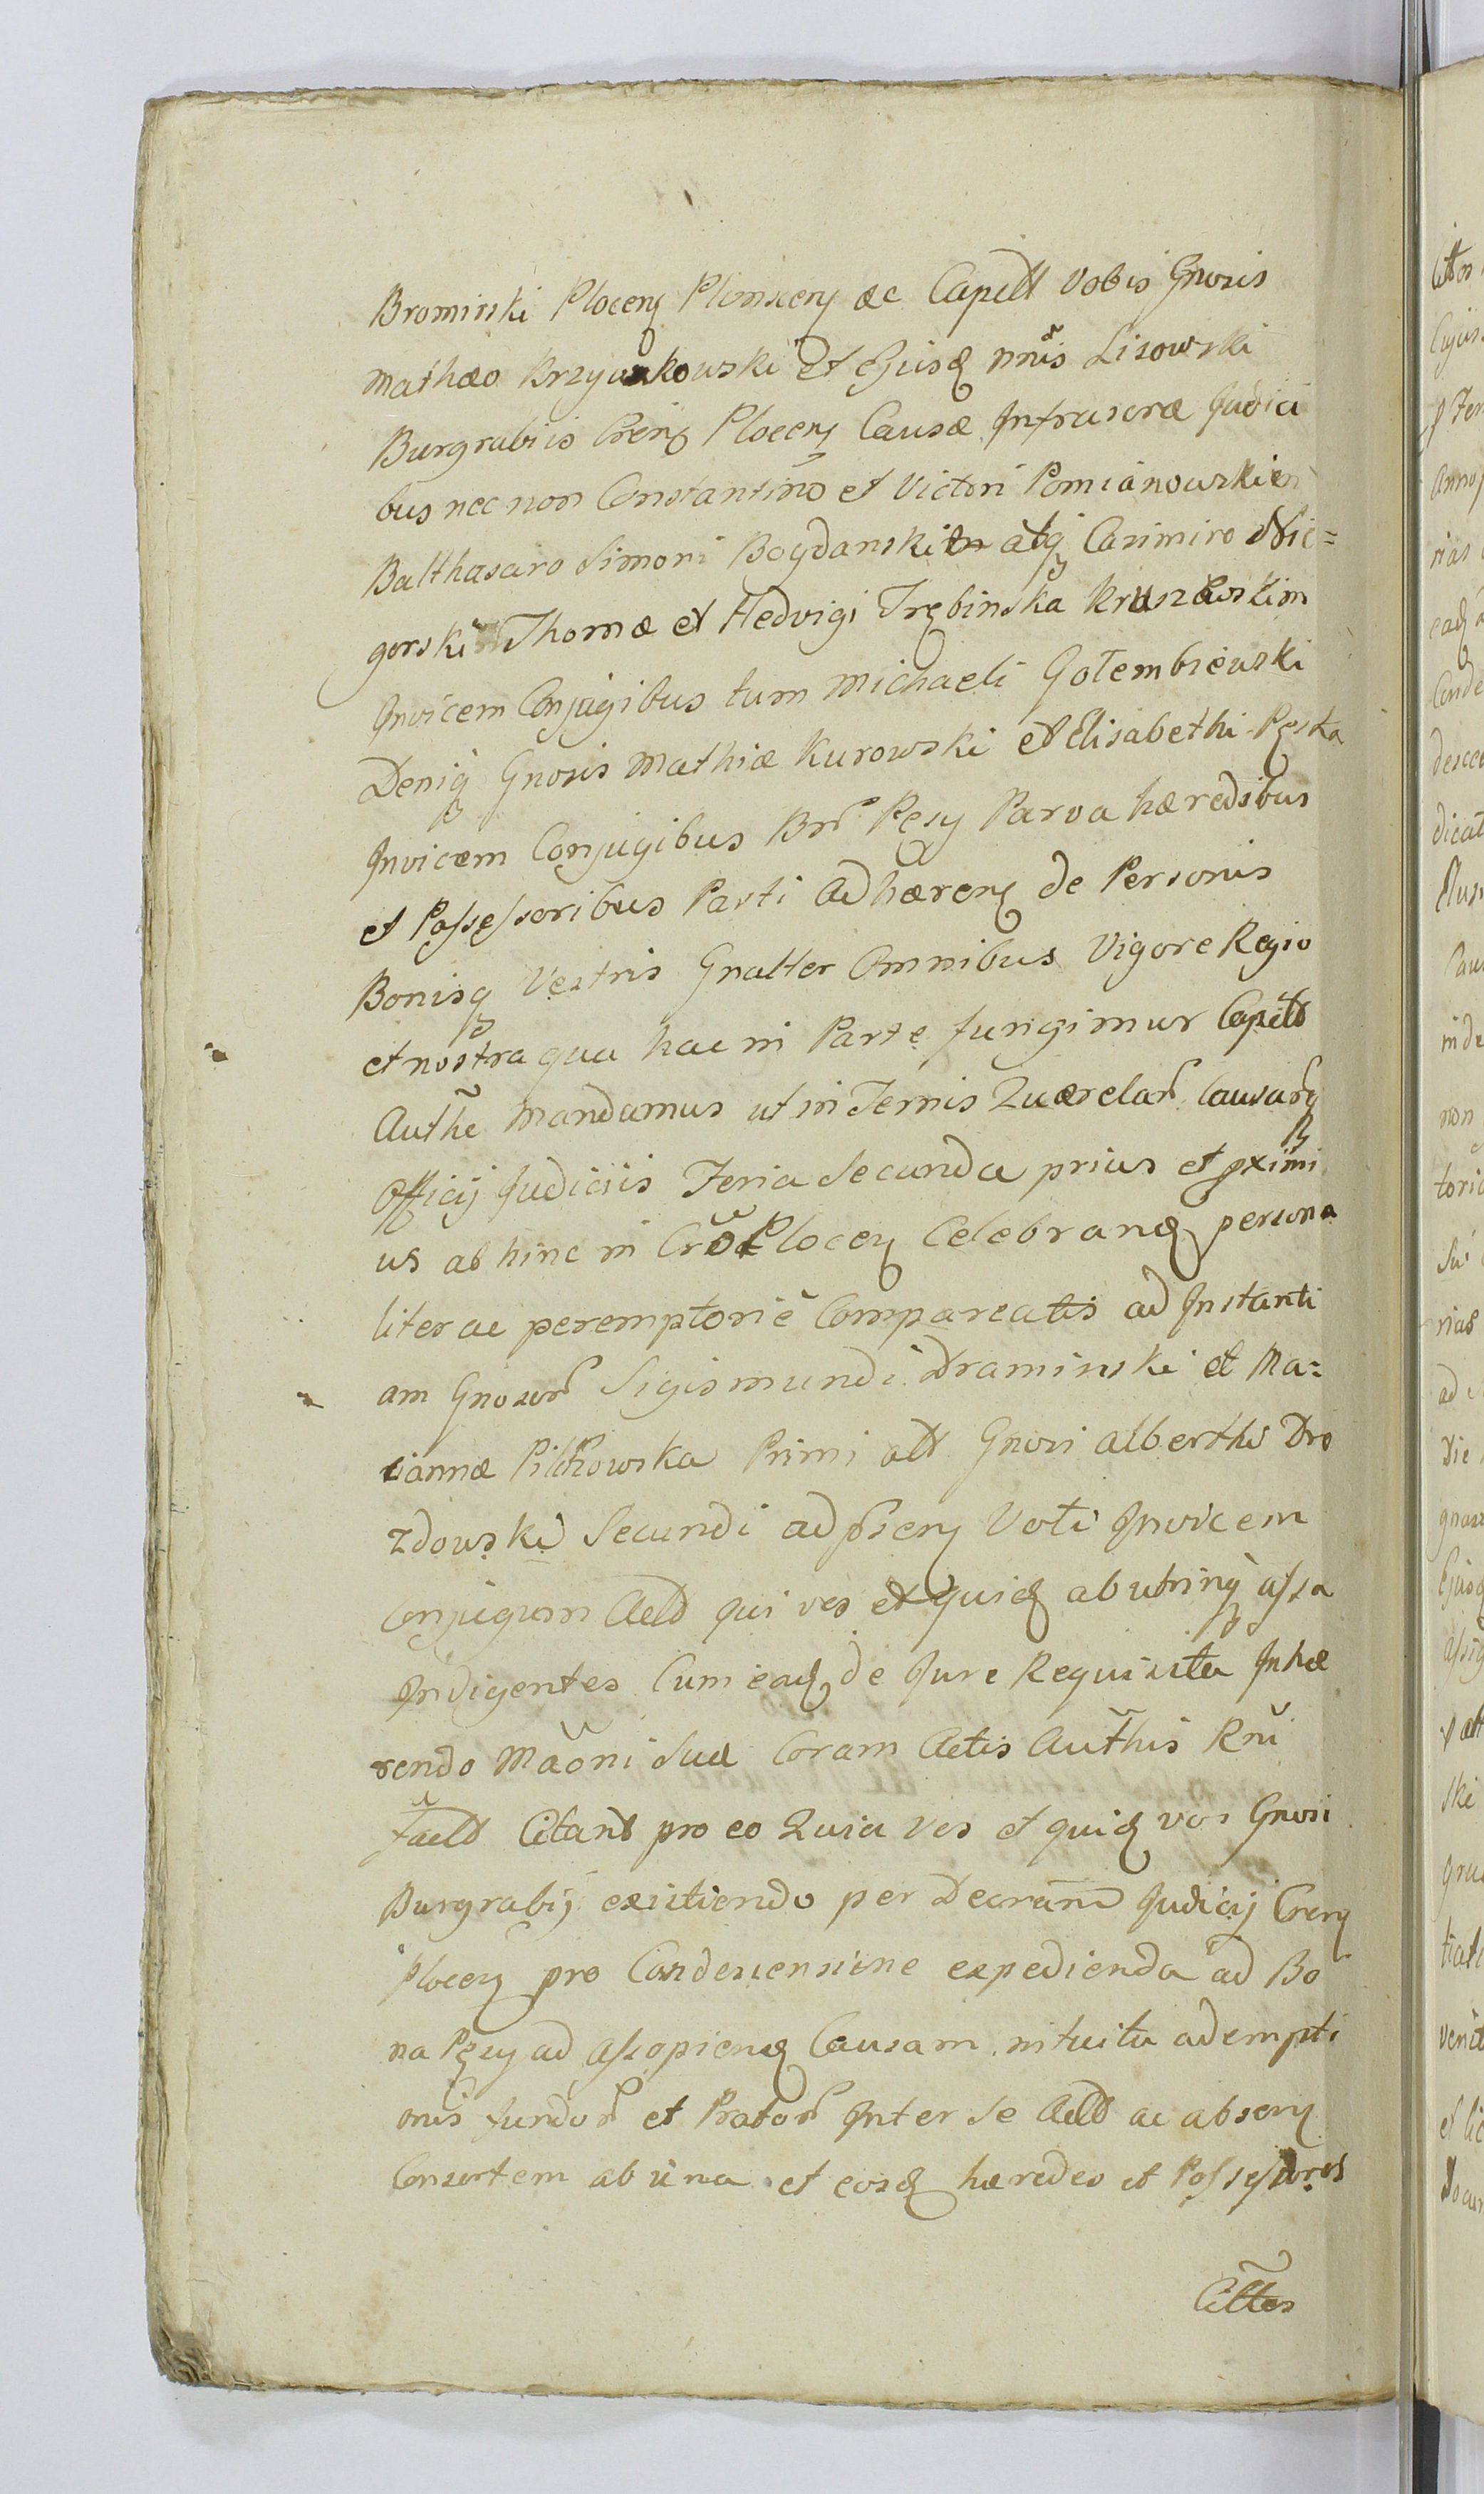 Bromirski Plocen Plonscen ac Capitt Vobis Gnosis
Mathæo Krzywkowski Et Ejusd nnis Lisowski
Burgrabiis Cren Plocen Causæ Infrascræ Judici
bus nec non Constantino et Victori Pomianowskien
Balthasaro Simoni Bogdanskien atq Casimiro Nie=
gorski Thomæ et Hedvigi Trębinska Kruszewskim
Invicem Conjugibus tum Michaeli Gołembiewski
Deniq Gnosis Mathiæ Kurowski et Elisabethi Pęska
Invicem Conjugibus Br Pęsy Parva hæredibus
et Possessoribus Parti Adhæren de Personis
Bonisq Vestris Gnalter Omnibus Vigore Regio
et nostra qua hac in Parte fungimur Capitt
Authe Mandamus ut in Termis Quærelar Causarq
Officij Judiciis Feria Secunda prius et pximi
us ab hinc in Cro Plocen Celebrand persona
liter ac peremptorie Compareatis ad Instanti
am Gnosor Sigismundi Draminski et Ma=
riannæ Pilchowska Primi alt Gnosi Alberthi Dro
zdowski Secundi ad psen Voti Invicem
Conjugum Actt qui vos et quid ab utrinq assa
Indigentes Cum ead de Jure Requisita Inhæ
rendo Maoni Suæ Coram Actis Authis Rni
factt Citant pro eo Quia vos et quid vos Gnosi
Burgrabij existendo per Decretum Judicij Cren
Plocen pro Condescensione expedienda ad Bo
na Pęsy ad assopiend Causam intuitu adempti
onis fundor et Prator Inter se Actt ac absen
Consortem ab una et eosd hæredes et Possessores
Cittos